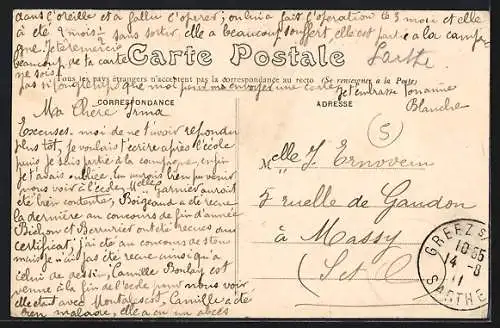 dans l'oreille et a fallu l'opérer; on lui a fait l'opération le 3 mai et elle
a été 2 mois ½ sans sortir elle a beaucoup souffert, elle est partie à la campagne
Je te remercie
beaucoup de ta carte
Carte Postale
Sarthe
Tous les pays étrangers n'acceptent pas la correspondance au recto (Se renseigner à la Poste)
ne sois
pas si longtemps que moi pour m'envoyer une carte
Je t'embrasse
Blanche
CORRESPONDANCE
ADRESSE
Ma Chère Irma
Excuses-moi de ne t'avoir répondu
plus tôt, je voulais t'écrire après l'école
puis je suis partie à la campagne, enfin
je t'avais oublié. Tu aurais bien pu venir
nous voir à l'école, Melle Garnier aurait
été bien contente, Boigeaud a été reçue
la dernière au concours de fin d'année
et Bernurier ont été reçues au
certificat, j'ai été au concours de
mais je n'ai pas été reçue ainsi qu'à
celui de dessin, Camille Boulay est
venue à la fin de l'école pour nous voir
elle était avec Camille a été
bien malade, elle a eu un abcès
(S)
Melle J. Ernovein
5 ruelle de Gaudon
à Massy
(S et O)
GREEZ S
10 55
14 -8
11
SARTHE